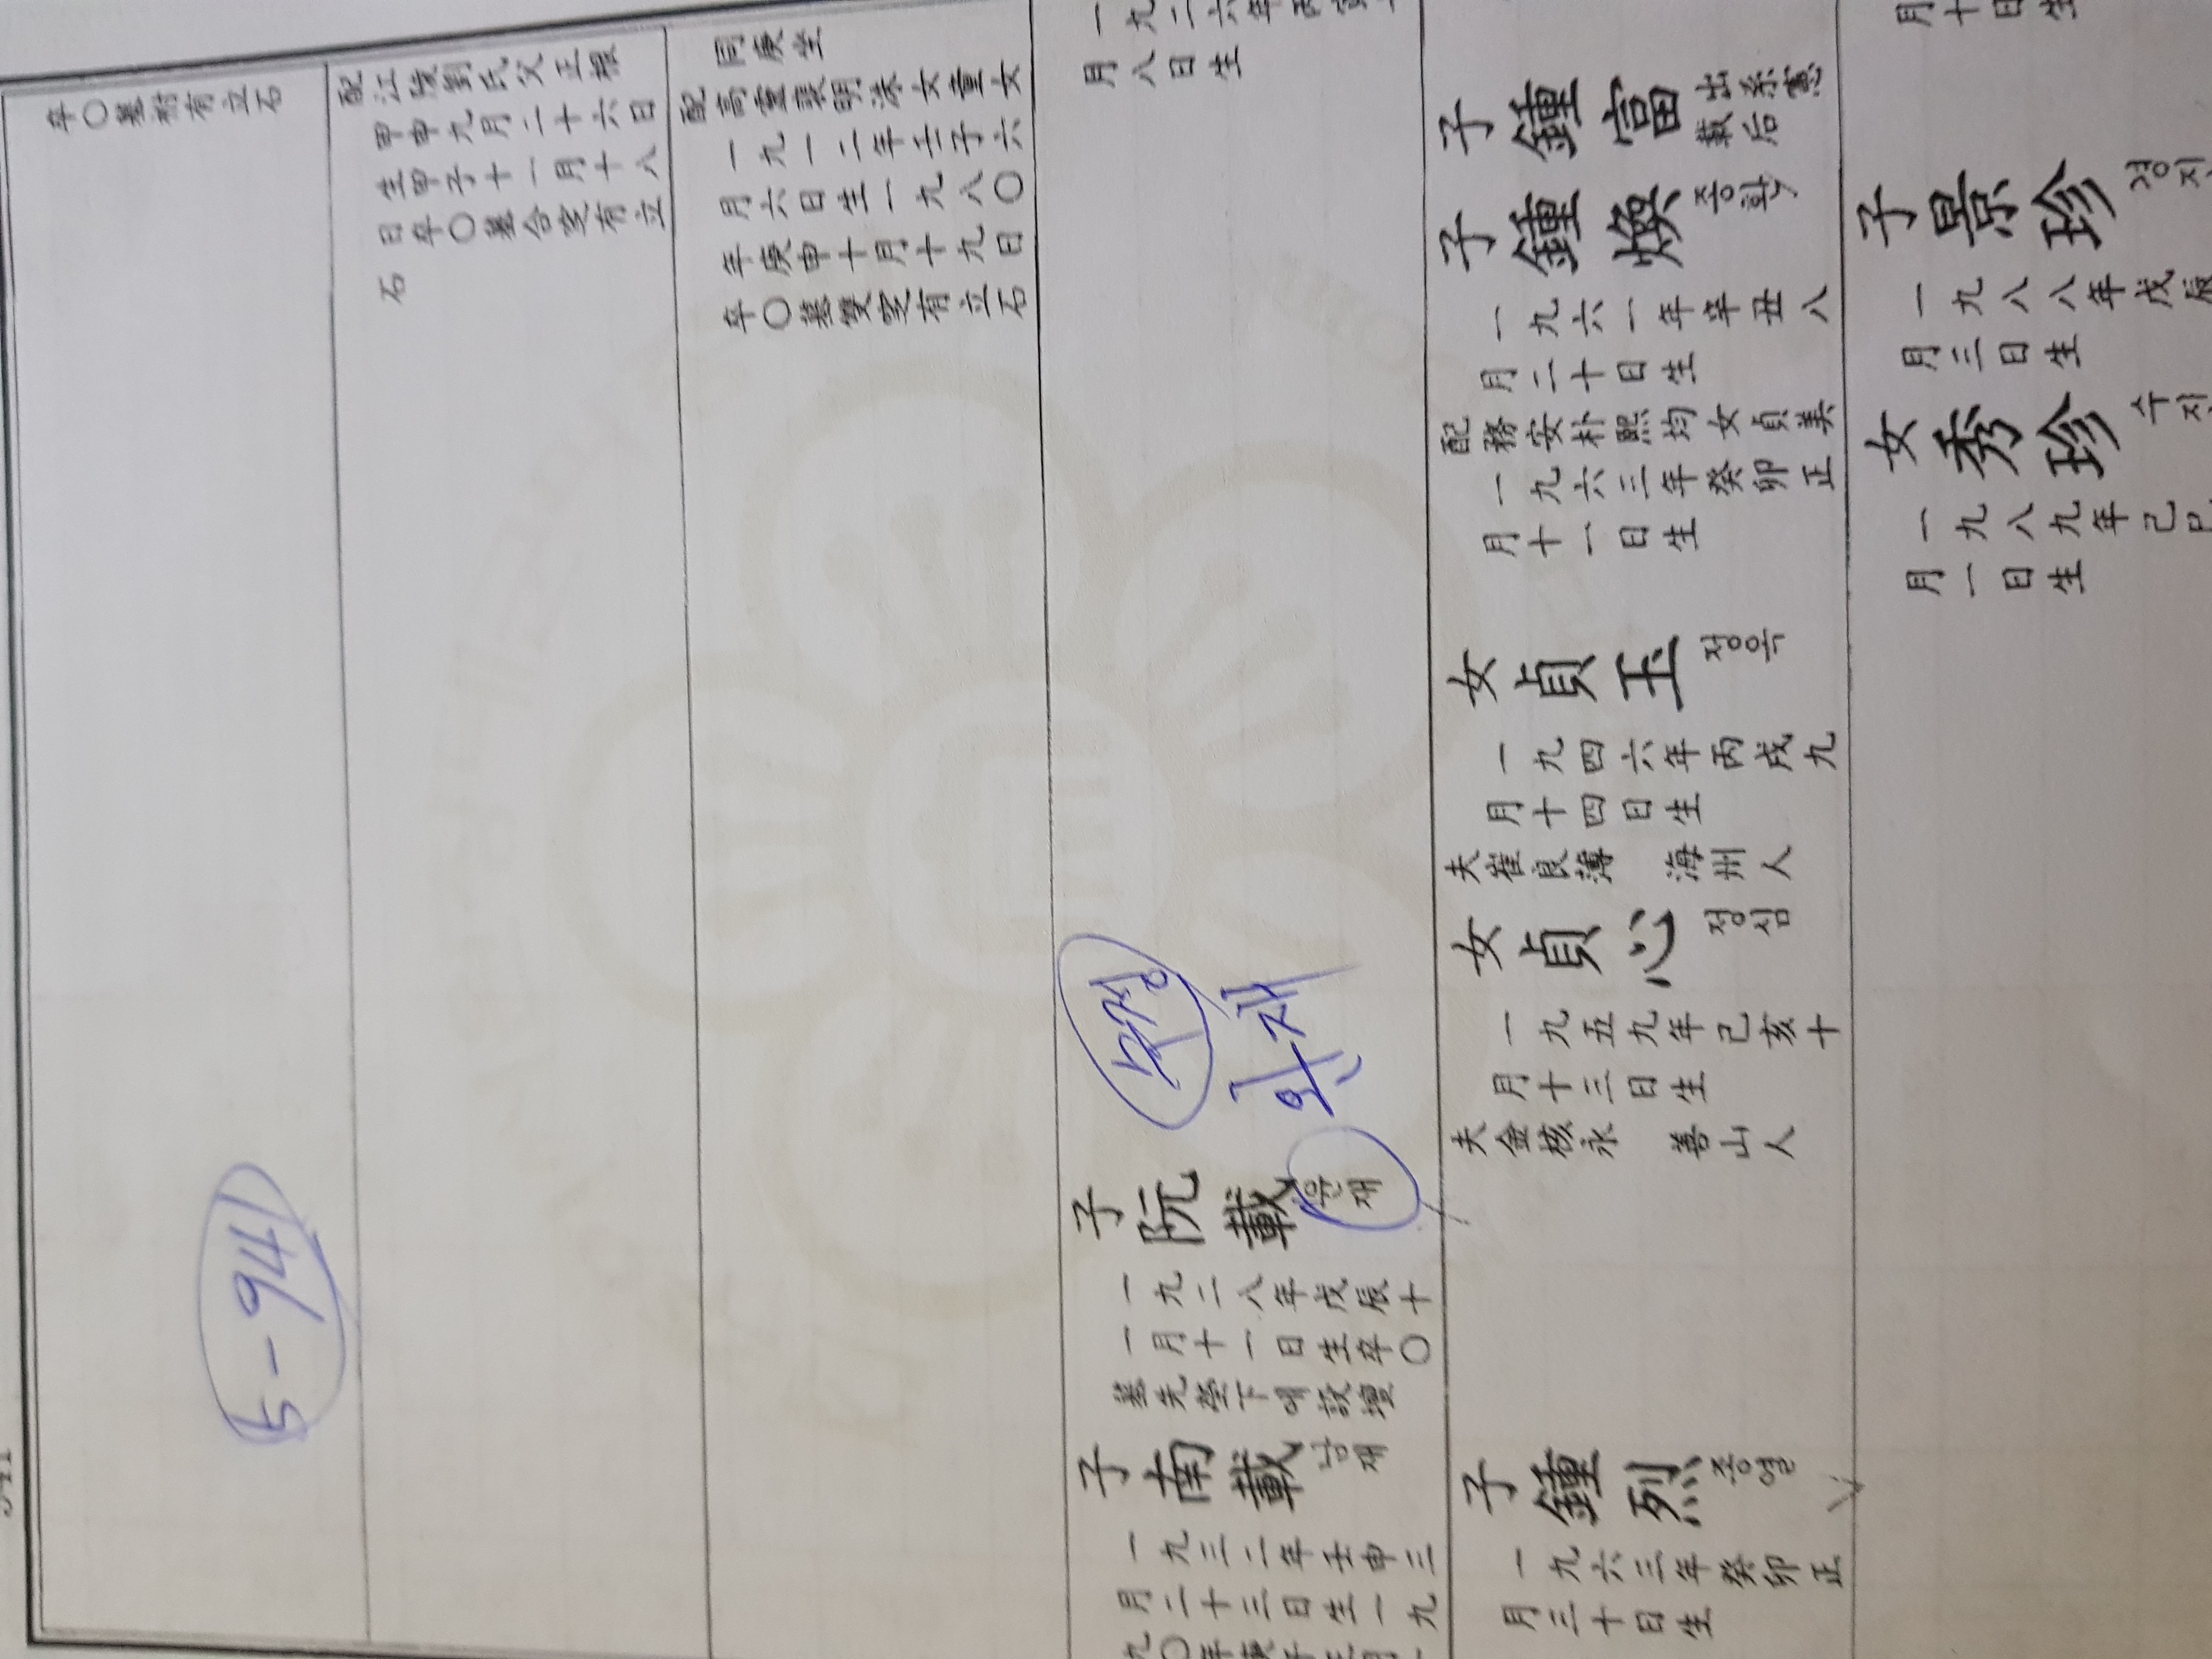 卒〇墓祔有立石
甲申九月二十六日
生甲子十一月十八
日卒〇墓合窆有立
石
同庚坐
一九一二年壬子六
月六日生一九八〇
年庚申十月十九日
卒〇墓雙窆有立石
月八日生
子 阮載
一九二八年戊辰十
一月十一日生卒〇
墓先塋下에設壇
子 南載 남재
一九三二年壬申三
月二十三日生一九
子 鍾富 出系憲載后
子 鍾煥 종환
一九六一年辛丑八
月二十日生
配務安朴熙均女貞美
一九六三年癸卯正
月十一日生
女 貞玉 정옥
一九四六年丙戌九
月十四日生
夫崔良薄 海州人
女 貞心 정심
一九五九年己亥十
月十三日生
夫金核永 善山人
子 鍾烈 종열
一九六三年癸卯正
月三十日生
月十日生
子 景珍 경진
一九八八年戊辰
月三日生
女 秀珍 수진
一九八九年己巳
月一日生
5-941